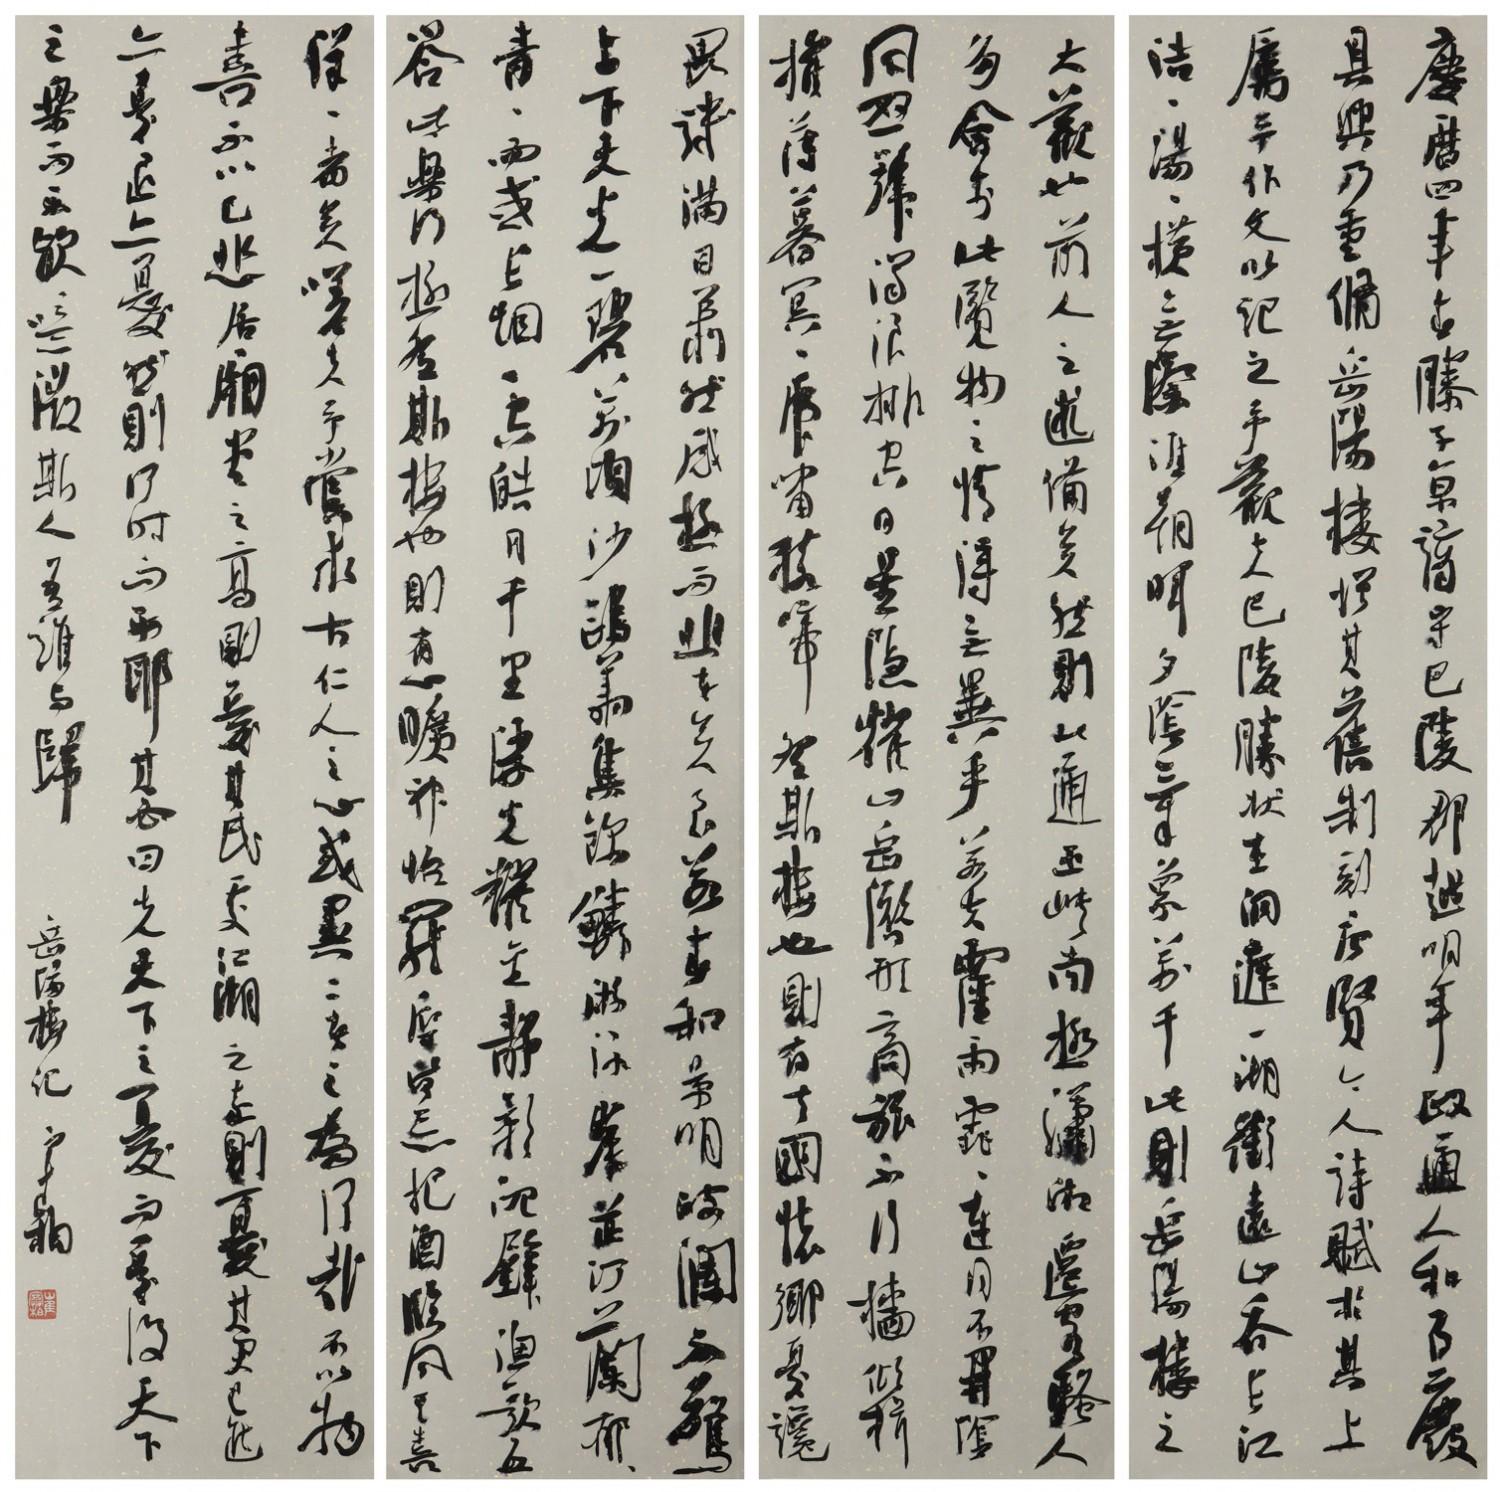 慶曆四年春滕子京謫守巴陵郡越明年政通人和百廢
具興乃重脩岳陽樓增其舊制刻唐賢今人詩賦於其上
屬予作文以記之予觀夫巴陵勝狀在洞庭一湖銜遠山吞長江
浩、湯、橫無際涯朝暉夕陰氣象萬千此則岳陽樓之
大觀也前人之述備矣然則北通巫峽南極瀟湘遷客騷人
多會於此覽物之情得無異乎若夫霪雨霏、連月不開陰
風怒號濁浪排空日星隱耀山岳潛形商旅不行檣傾楫
摧薄暮冥、虎嘯猿啼登斯樓也則有去國懷鄉憂讒
畏譏滿目蕭然感極而悲者矣至若春和景明波瀾不驚
上下天光一碧萬頃沙鷗翔集錦鱗游泳岸芷汀蘭郁、
青、而或長烟一空皓月千里浮光耀金靜影沉璧漁歌互
答此樂何極登斯樓也則有心曠神怡寵辱皆忘把酒臨風其喜
洋、者矣嗟夫予嘗求古仁人之心或異二者之為何哉不以物
喜不以己悲居廟堂之高則憂其民處江湖之遠則憂其君是進
亦憂退亦憂然則何時而樂耶其必曰先天下之憂而憂後天下
之樂而樂歟噫微斯人吾誰與歸 岳陽樓記